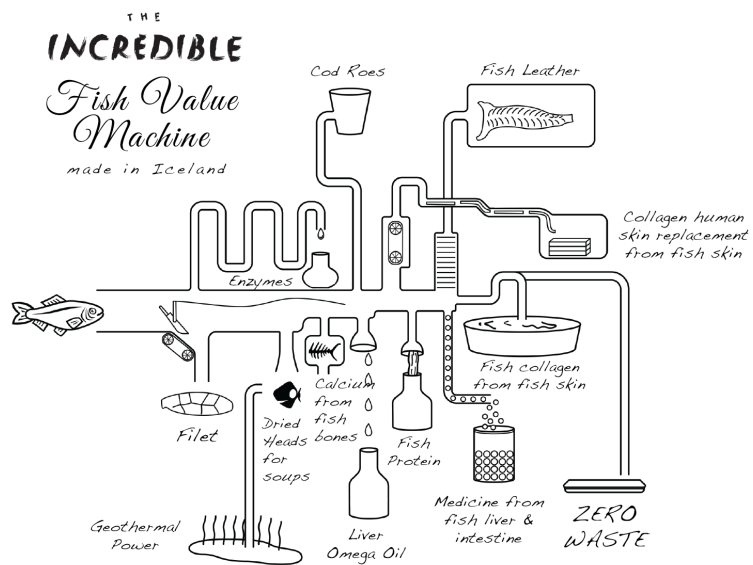 THE
INCREDIBLE
Fish Value
Machine
made in Iceland
Cod Roes
Fish Leather
Collagen human
skin replacement
from fish skin
Enzymes
Fish collagen
from fish skin
Filet
Dried
Heads
for
soups
Calcium
from
fish
bones
Fish
Protein
Medicine from
fish liver &
intestine
Liver
Omega Oil
Geothermal
Power
ZERO
WASTE